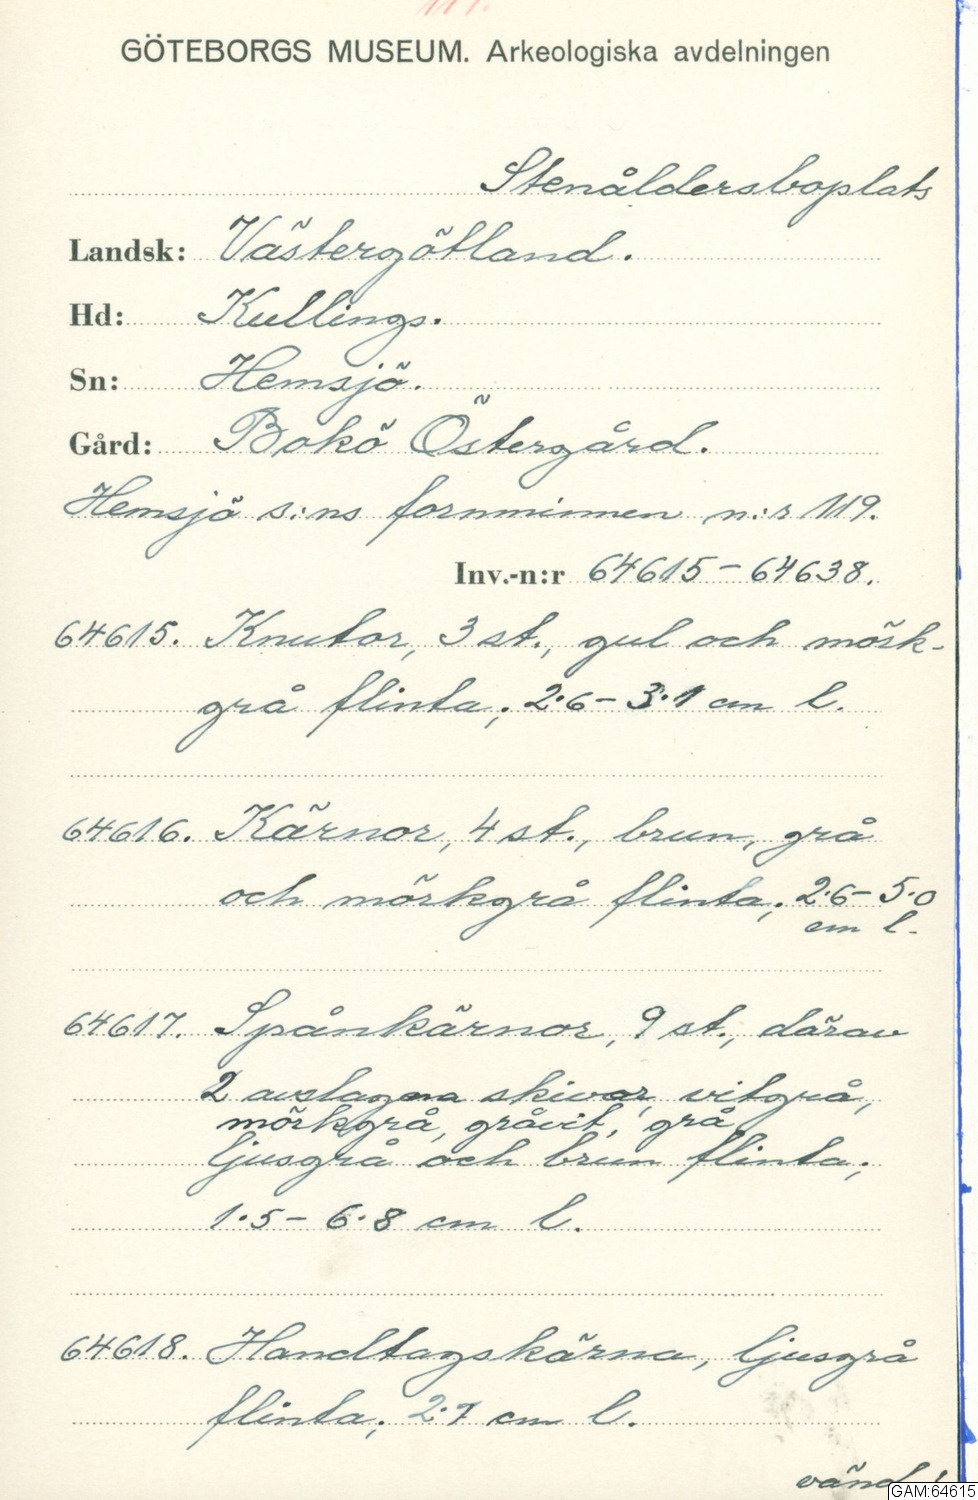 GÖTEBORGS MUSEUM. Arkeologiska avdelningen
Stenåldersboplats
Landsk: Västergötland.
Hd: Kullings.
Sn: Hemsjö.
Gård: Bokö Östergård.
Hemsjö s:ns fornminnen n:r 119.
Inv.-n:r 64615-64638.
64615. Knutor, 3 st., gul och mörk-
grå flinta; 2·6-3·1 cm l.
64616. Kärnor, 4 st., brun, grå
och mörkgrå flinta; 2·6-5·0
cm l.
64617. Spånkärnor, 9 st., därav
2 avslagna skivor, vitgrå,
mörkgrå, gråvit, grå
ljusgrå och brun flinta;
1·5-6·8 cm l.
64618. Handtagskärna, ljusgrå
flinta; 2·7 cm l.
vänd!
GAM:64615